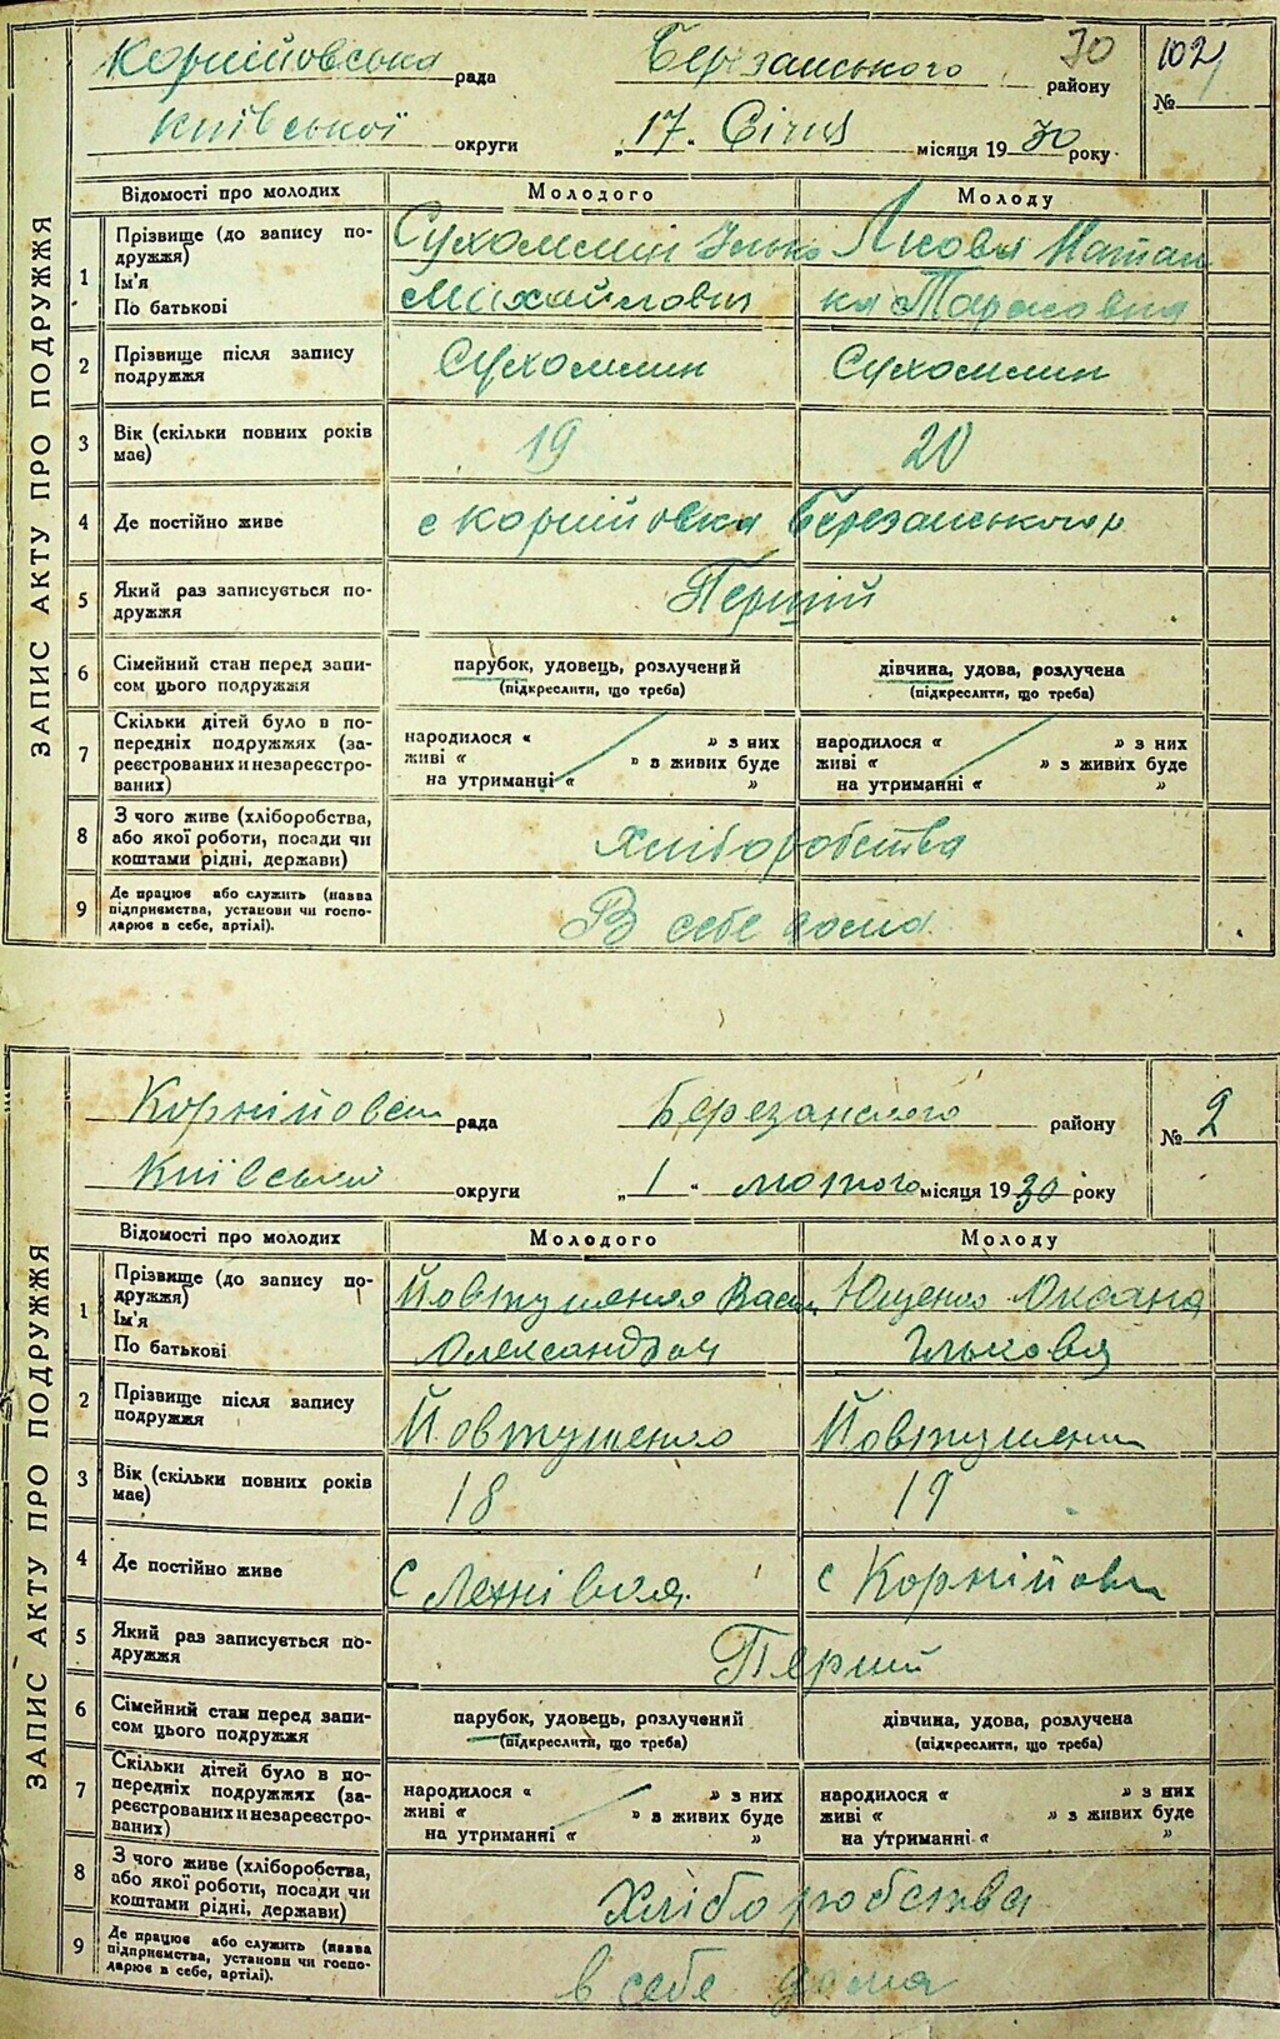 Корнійовська рада Березанського району 102
№
Київської округи „17" Січня місяця 1930 року
ЗАПИС АКТУ ПРО ПОДРУЖЖЯ
Відомості про молодих Молодого Молоду
1 Прізвище (до запису по-
дружжя)
Ім'я
По батькові
Сухомлин Ілько
Михайлович
Тарасовна
2 Прізвище після запису
подружжя
Сухомлин Сухомлин
3 Вік (скільки повних років
має)
19 20
4 Де постійно живе с Корнійовка Березанського р
5 Який раз записується по-
дружжя
Перший
6 Сімейний стан перед запи-
сом цього подружжя
парубок, удовець, розлучений
(підкреслити, що треба)
дівчина, удова, розлучена
(підкреслити, що треба)
7 Скільки дітей було в по-
передніх подружжях (за-
реєстрованих и незареєстро-
ваних)
народилося « » з них
живі « » з живих буде
на утриманні « »
народилося « » з них
живі « » з живих буде
на утриманні « »
8 З чого живе (хліборобства,
або якої роботи, посади чи
коштами рідні, держави)
хліборобства
9 Де працює або служить (назва
підприємства, установи чи госпо-
дарює в себе, артілі).
В себе дома
Корнійовськ рада Березанського району № 2
Київської округи „1" лютого місяця 1930 року
ЗАПИС АКТУ ПРО ПОДРУЖЖЯ
Відомості про молодих Молодого Молоду
1 Прізвище (до запису по-
дружжя)
Ім'я
По батькові
Йовтушенко Васил
Олександрович
Ющенко Оксана
Ільковна
2 Прізвище після запису
подружжя
Йовтушенко Йовтушенко
3 Вік (скільки повних років
має)
18 19
4 Де постійно живе с с Корнійовк
5 Який раз записується по-
дружжя
Перший
6 Сімейний стан перед запи-
сом цього подружжя
парубок, удовець, розлучений
(підкреслити, що треба)
дівчина, удова, розлучена
(підкреслити, що треба)
7 Скільки дітей було в по-
передніх подружжях (за-
реєстрованих и незареєстро-
ваних)
народилося « » з них
живі « » з живих буде
на утриманні « »
народилося « » з них
живі « » з живих буде
на утриманні « »
8 З чого живе (хліборобства,
або якої роботи, посади чи
коштами рідні, держави)
Хліборобства
9 Де працює або служить (назва
підприємства, установи чи госпо-
дарює в себе, артілі).
в себе дома